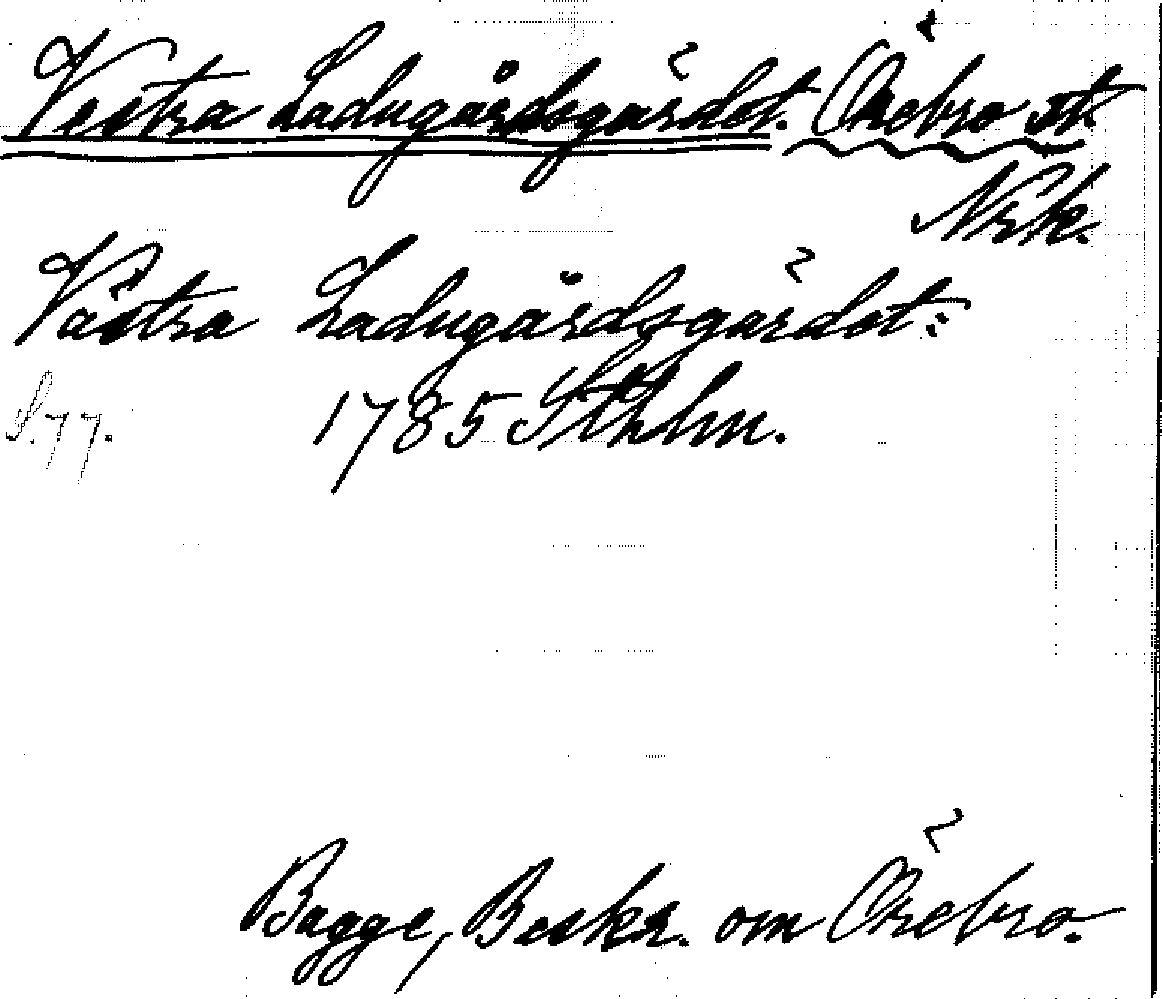 Vestra Ladugårdsgärdet. Örebro st.
Nrk.
Västra Ladugårdsgärdet:
S. 77. 1785 Sthlm.
Bagge, Beskr. om Örebro.